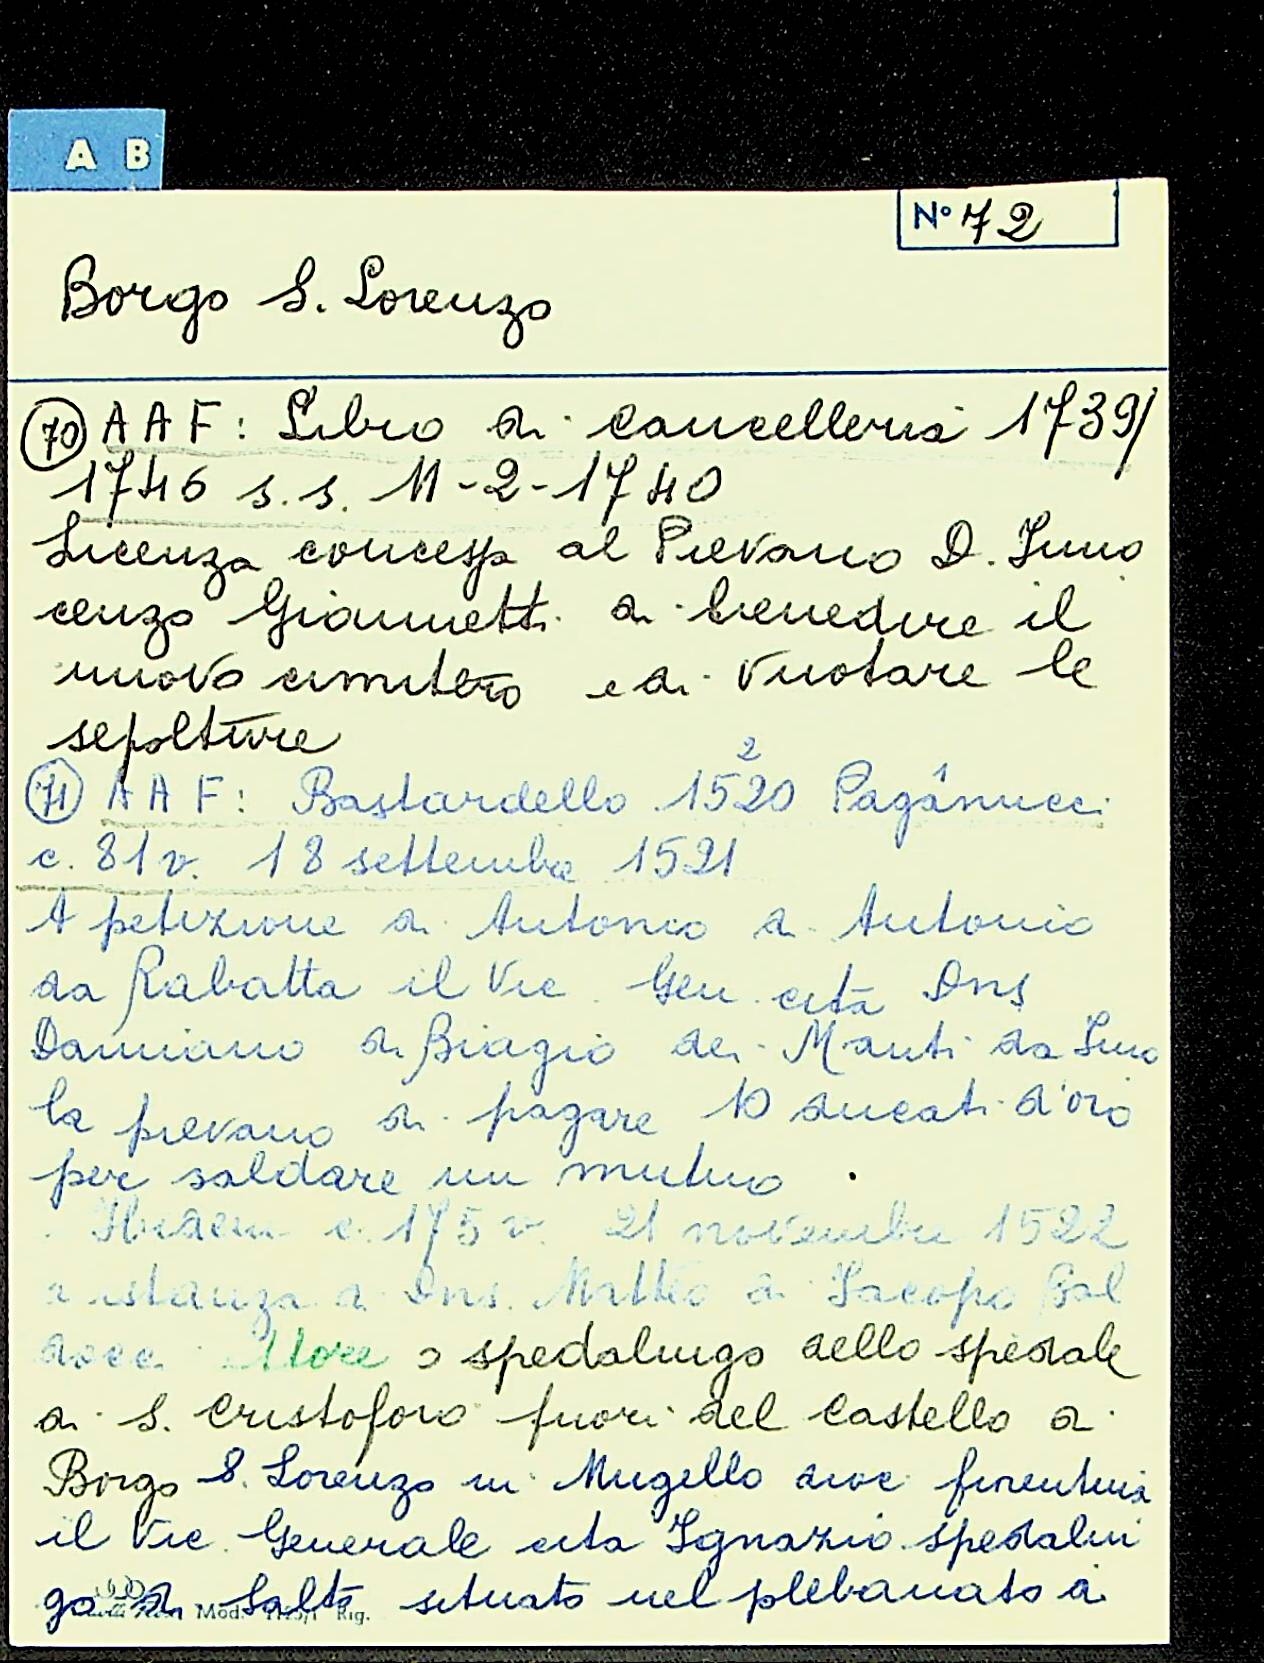 A B
N° 72
Borgo S. Lorenzo
70 A A F: Libro di cancelleria 1739/
1746 s.s. 11-2-1740
Licenza concessa al Pievano D. Inno
cenzo Giannetti di benedire il
nuovo cimitero e di vuotare le
sepolture
2 1
71 A A F: Bastardello 1520 Paganucci
c. 81v. 18 settembre 1521
A petizione di Antonio di Antonio
da Rabatta il Vic. Gen. cita Dns
Damiano di Biagio dei Manti da Imo
la pievano di pagare 10 ducati d'oro
per saldare un mutuo.
Ibidem c. 175 v. 21 novembre 1522
a istanza di Dns. Matteo di Jacopo Bal
docci o spedalingo dello spedale
di S. Cristoforo fuori del Castello di
Borgo S. Lorenzo in Mugello dioc. fiorentina
il Vic. Generale cita Ignazio spedalin
go di Salto situato nel plebanato di
Mod. Rig.